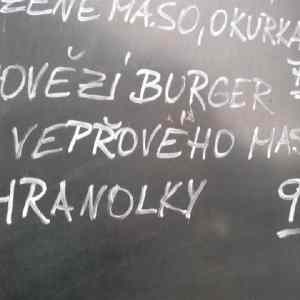 ZENÉ MASO, OKURKA
OVĚZÍ BURGER
VEPŘOVÉHO MAS
HRANOLKY 9